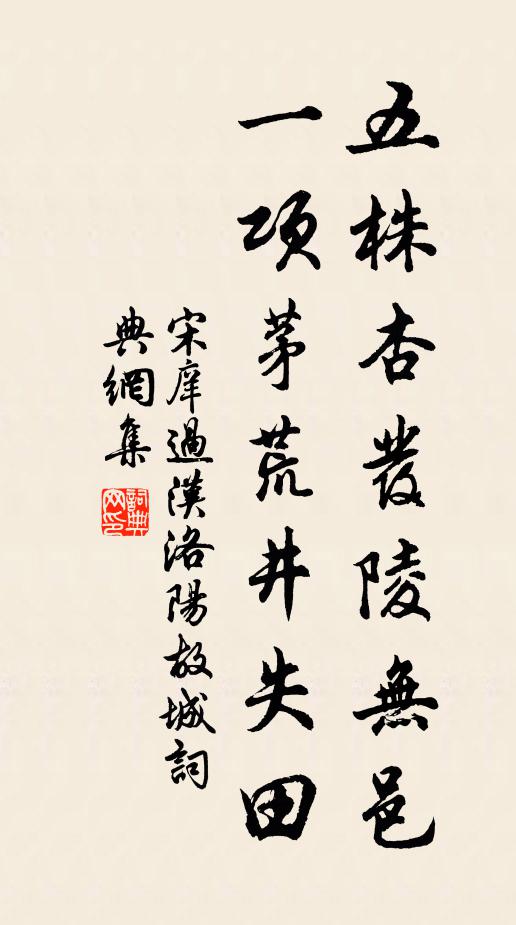 五株杏發陵無邑
一項茅荒井失田
宋庠過漢洛陽故城詞
典網集
詞典網印